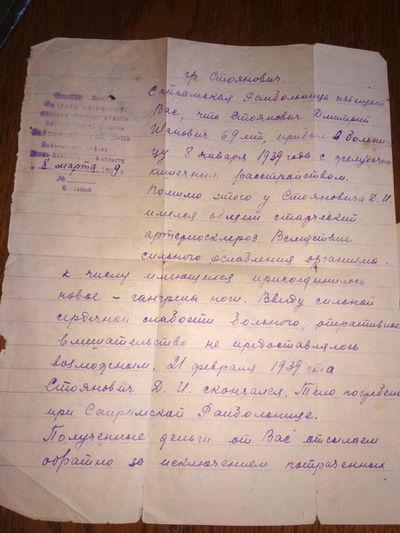 гр Стоянович.
Сайрамская Райбольница извещает
Вас, что Стоянович Дмитрий
Иванович 69 лет, прибыл в больни-
цу 8 января 1939 года с желудочно
кишечным расстройством.
Помимо этого у Стояновича Д. И.
имелся общий старческий
артериосклероз. Вследствие
сильного ослабления организма-
к числу имеющихся присоединилось
новое - гангрена ноги. Ввиду сильной
сердечной слабости больного, оперативное
вмешательство не предоставлялось
возможным. 21 февраля 1939 г-та
Стоянович Д. И. скончался. Тело погребено
при Сайрамской Райбольнице.
Полученные деньги от Вас отсылаем
обратно за исключением потраченных
8 марта 1939 г.
№